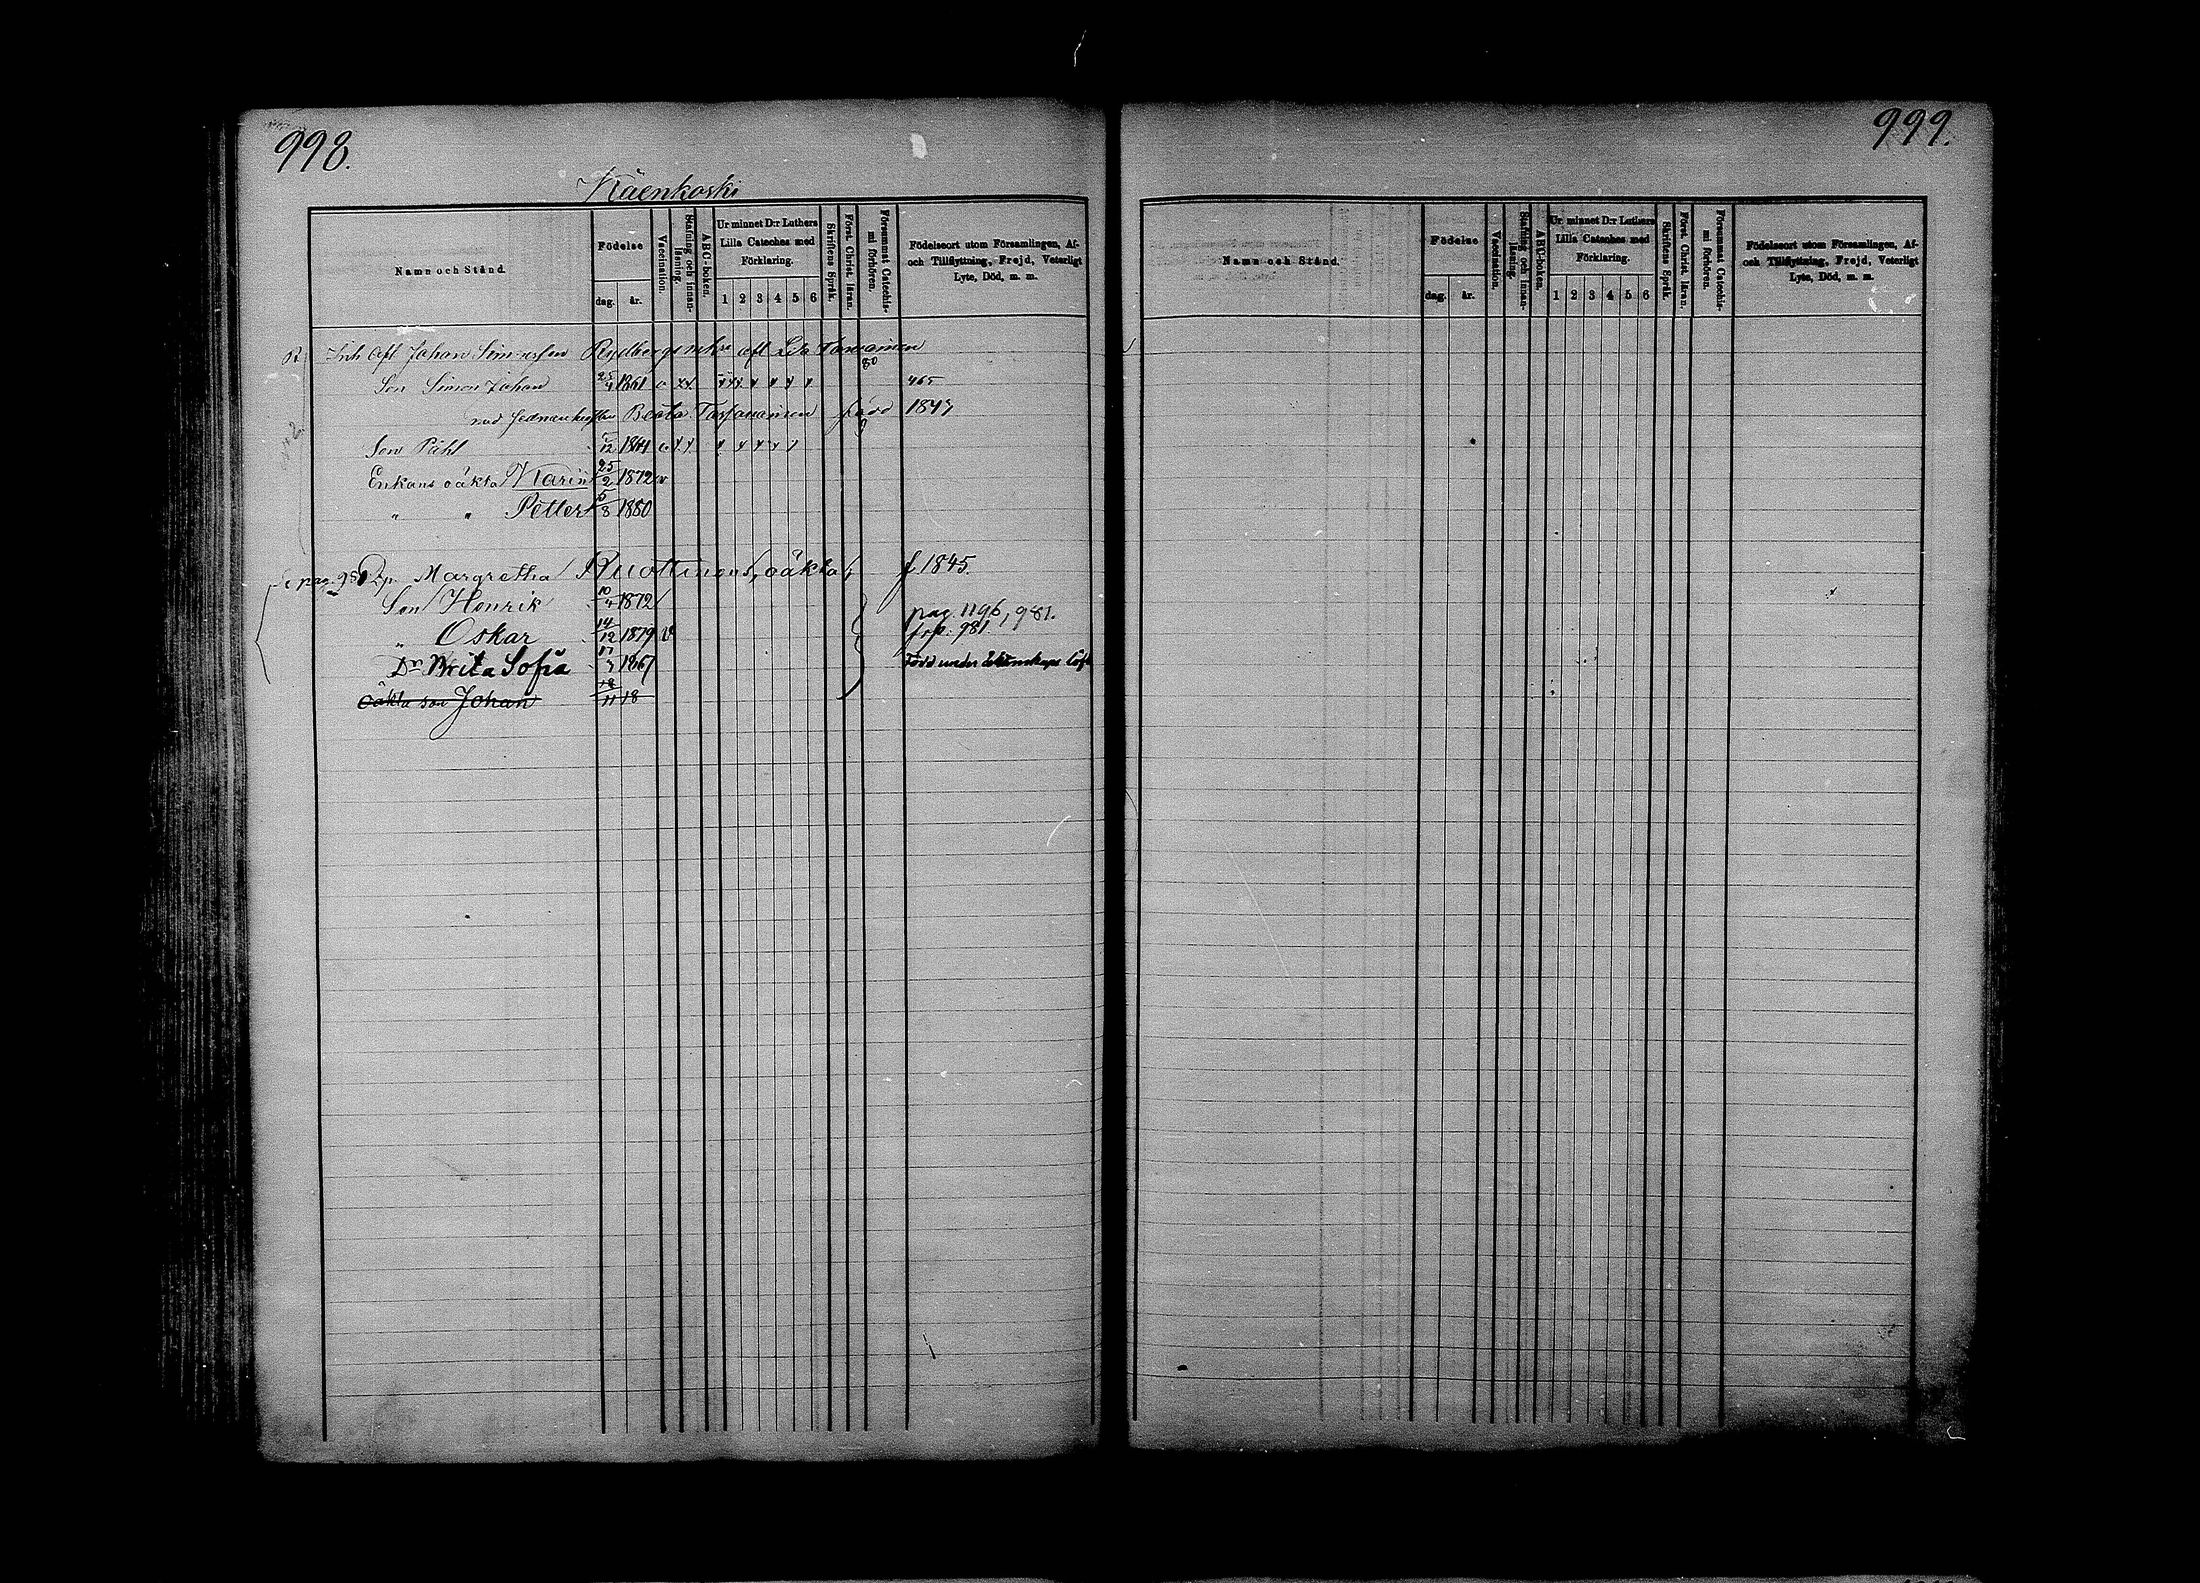 998.
Käenkoski
Namn och Stånd.
Födelse
dag. år.
Vaccination.
Stafning och innan-läsning.
ABC-boken.
Ur minnet D:r Luthers Lilla Cateches med Förklaring.
1 2 3 4 5 6
Skriftens Språk.
Först. Christ. läran.
Försummat Catechis-mi förhören.
Födelseort utom Församlingen, Af- och Tillflyttning, Frejd, Veterligt Lyte, Död, m. m.
Inh Afl Johan Simonsson Rydbergs enka afl
Son Simon Johan 25/4 1861 465
Beata född 1847
Son Påhl 12
Enkans oäkta Karin 25/2 1872 v
" " Petter 6/8 1880
Margretha Ruottinens oäkta f 1845.
Son Henrik 10/4 1872
pag. 1196, 981.
" Oskar 14/12 1879 v 981
Dr Brita Sofia 1867 Född under
Oäkta son Johan 18/11 18
999.
Namn och Stånd.
Födelse
dag. år.
Vaccination.
Stafning och innan-läsning.
ABC-boken.
Ur minnet D:r Luthers Lilla Cateches med Förklaring.
1 2 3 4 5 6
Skriftens Språk.
Först. Christ. läran.
Försummat Catechis-mi förhören.
Födelseort utom Församlingen, Af- och Tillflyttning, Frejd, Veterligt Lyte, Död, m. m.